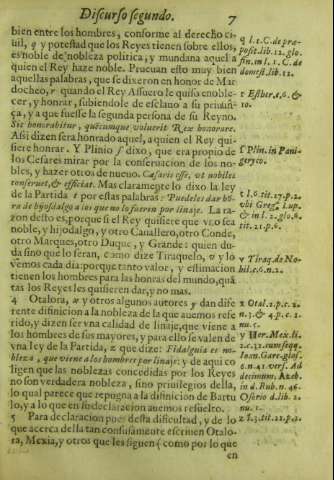 Discurso segundo. 7
bien entre los hombres, conforme al derecho ci-
uil, q y potestad que los Reyes tienen sobre ellos,
es noble de nobleza politica, y mundana aquel a
quien el Rey haze noble. Prueuan esto muy bien
aquellas palabras, que se dixeron en honor de Mar
docheo, r quando el Rey Assuero le quiso enoble-
cer, y honrar, subiendole de esclauo a su priuãn-
ça, y a que fuesse la segunda persona de su Reyno.
Sic honorabitur, quẽcumque voluerit Rex honorare.
Assi dizen sera honrado aquel, a quien el Rey qui-
siere honrar. Y Plinio s dixo, que era promio de
los Cesares mirar por la conseruacion de los no-
bles, y hazer otros de nueuo. Cæsaris esse, vt nobiles
conseruet, & efficiat. Mas claramẽte lo dixo la ley
de la Partida t por estas palabras: Puedeles dar hõ-
ra de hijosdalgo a los que no lo fueren por linaje. La ra-
zon desto es, porque si el Rey quisiere que vno sea
noble, y hijodalgo, y otro Cauallero, otro Conde,
otro Marques, otro Duque, y Grande: quien du-
da sino que lo seran, como dize Tiraquelo, u y lo
vemos cada dia: porque tanto valor, y estimacion
tienen los hombres para las honras del mundo, quã
tas los Reyes les quisieren dar, y no mas.
4 Otalora, x y otros algunos autores y dan dife
rente difinicion a la nobleza de la que auemos refe
rido, y dizen ser vna calidad de linaje, que viene a
los hombres de sus mayores, y para ello se valen de
vna ley de la Partida, z que dize: Fidalguia es no-
bleza, que viene a los hombres por linaje: y de aqui co
ligen que las noblezas concedidas por los Reyes
no son verdadera nobleza, sino priuilegios della,
lo qual parece que repugna a la difinicion de Bartu
lo, y a lo que en su declaracion auemos resuelto.
5 Para declaracion pues desta dificultad, y de lo
que acerca della tan confusamente escriuen Otalo-
ra, Mexia, y otros que les siguen; como por lo que
en
q l. 1. C. de præ-
posit. lib. 12. glo.
fin. in l. 1. C. de
domest. lib. 12.
r Esther. c. 6. &
10.
s Plin. in Pani-
gerico.
t l. 6. tit. 27. p. 2.
vbi Greg. Lup.
& in l. 2. glo. 6.
tit. 21. p. 6.
Tiraq. de No-
bil. c. 6. n. 2.
x Otal. 2. p. c. 2.
n. 3. & 4. p. c. 2.
nu. 5.
y Her. Mex. li.
Ioan. Gare. glos.
Osorio d. lib. 2.
nu. 1.
z l. 3. tit. 21. p. 2.